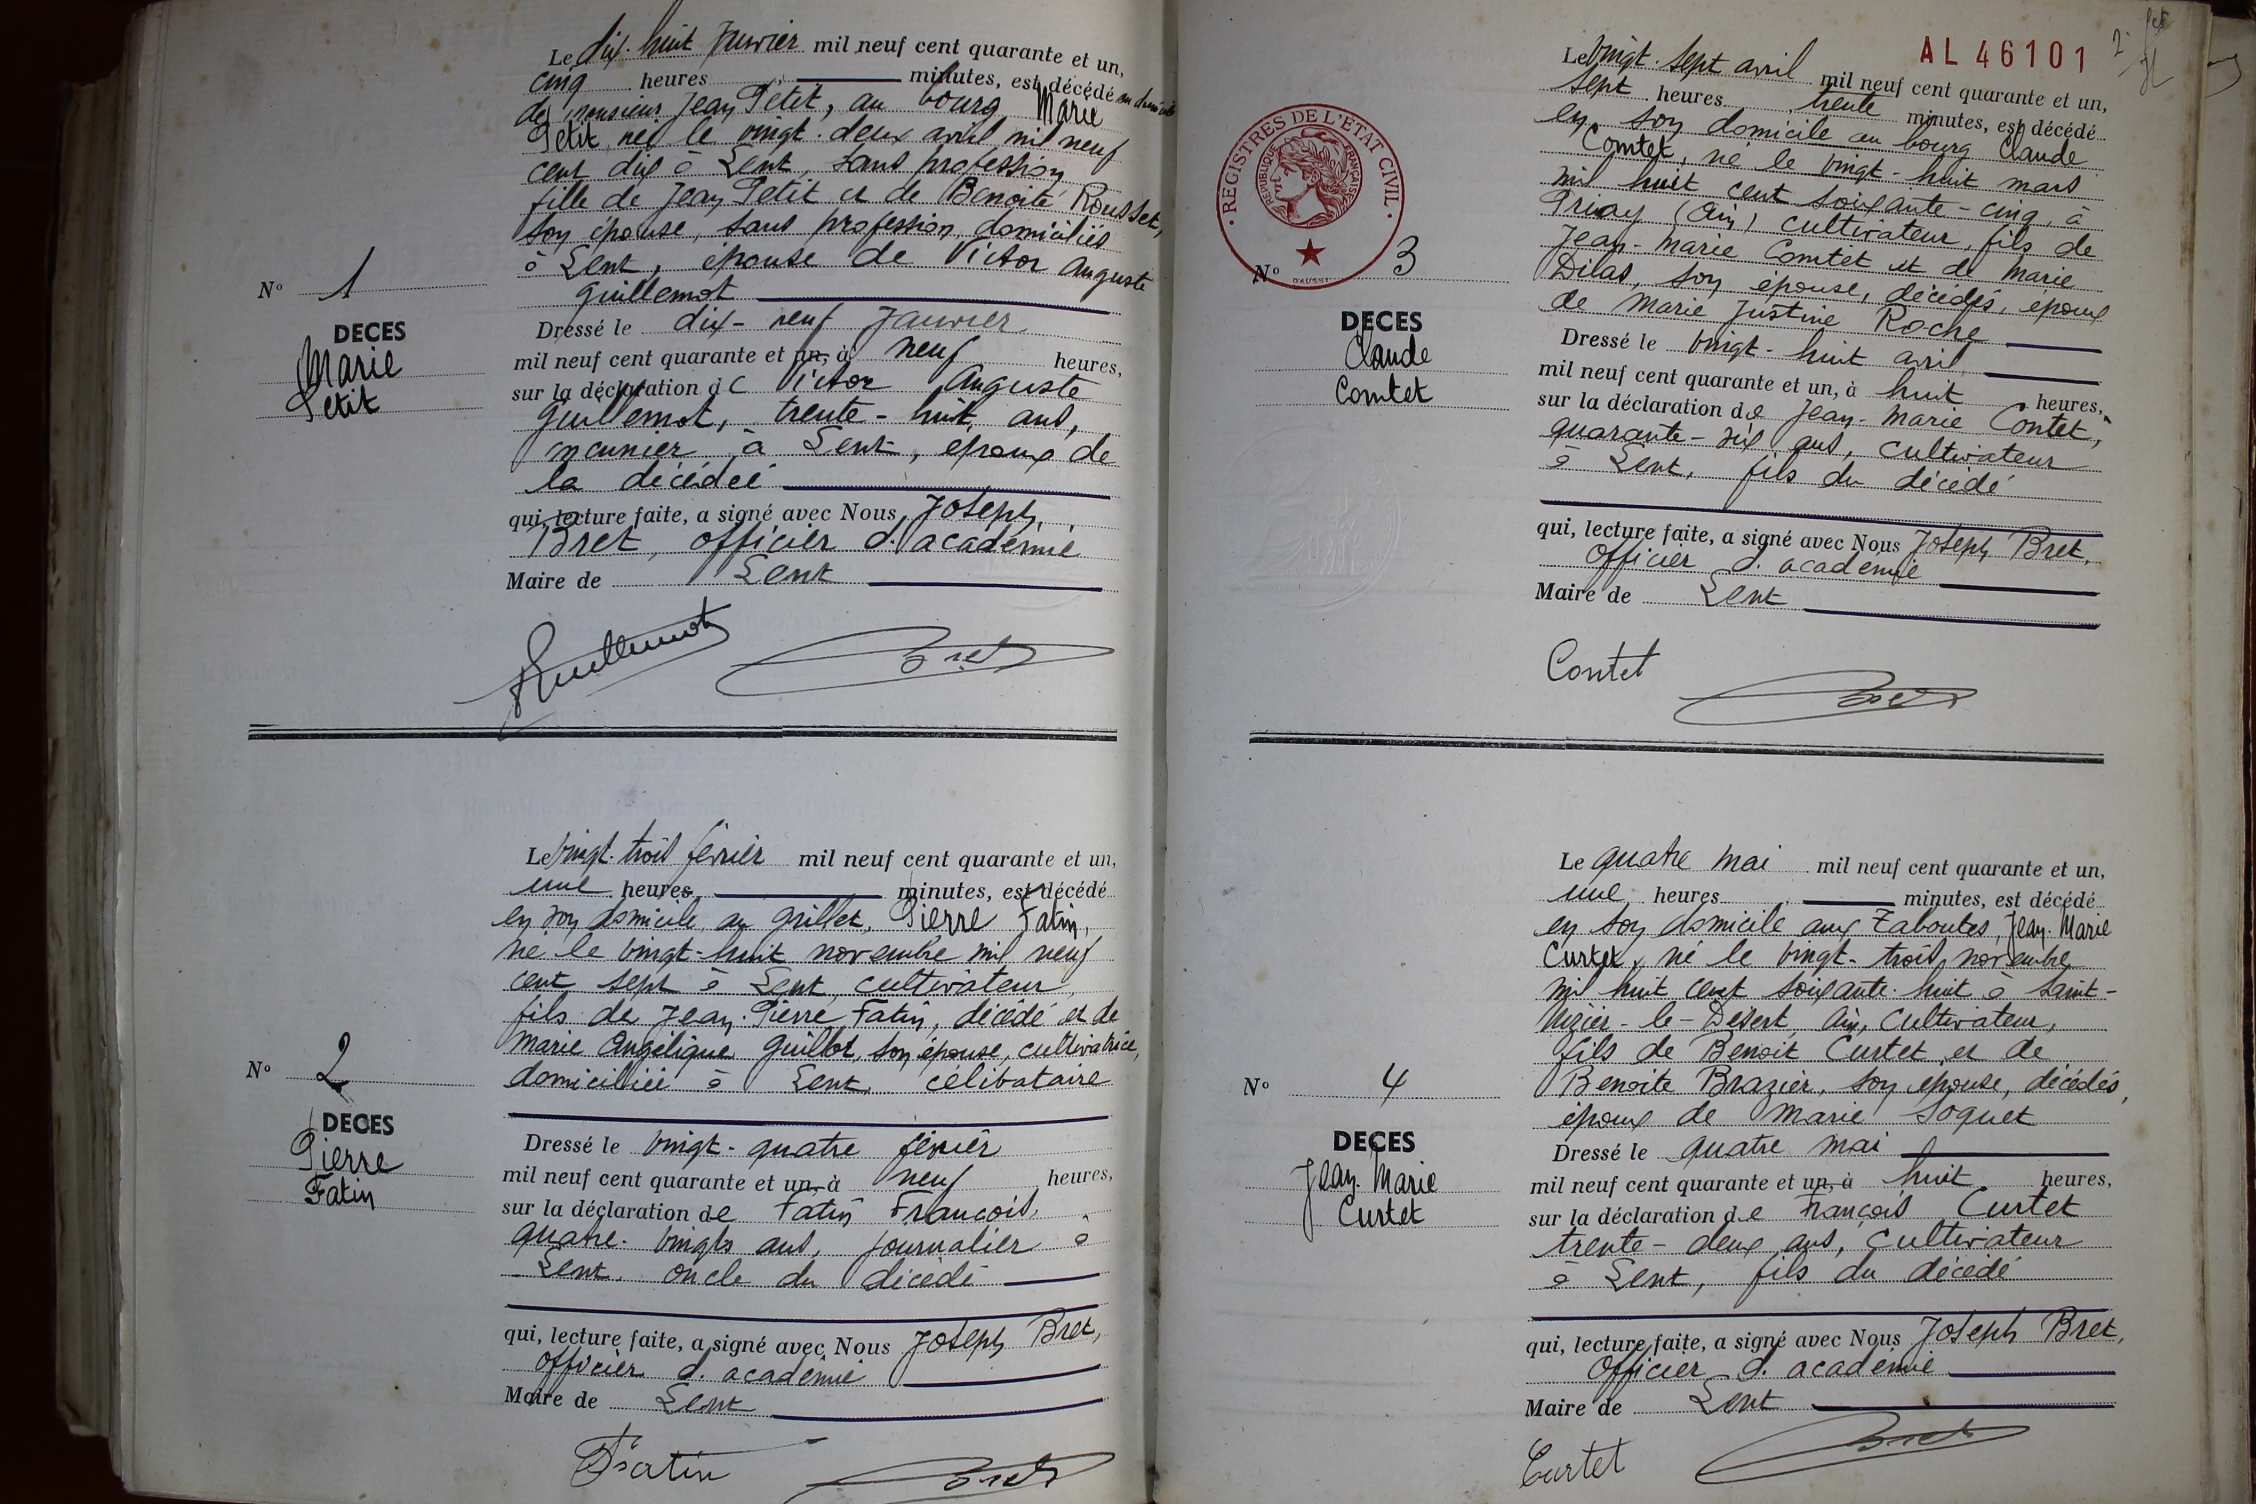 Le dix-huit Janvier mil neuf cent quarante et un,
cinq heures minutes, est décédé au domicile
de monsieur Jean Petit, au bourg Marie
Petit née le vingt-deux avril mil neuf
cent dix à Lent, sans profession
fille de Jean Petit et de Benoite Rousset,
son épouse, sans profession, domiciliés
à Lent, épouse de Victor Auguste
Guillemot
N° 1
DECES
Marie
Petit
Dressé le dix-neuf Janvier
mil neuf cent quarante et un, à neuf heures,
sur la déclaration de Victor Auguste
Guillemot, trente-huit ans,
meunier à Lent, époux de
la décédée
qui, lecture faite, a signé avec Nous Joseph
Bret, officier d'académie
Maire de Lent
Guillemot Bret
Le vingt-trois février mil neuf cent quarante et un,
une heures, minutes, est décédé
en son domicile au Grillet, Pierre Fatin,
né le vingt-huit novembre mil neuf
cent sept à Lent, cultivateur,
fils de Jean-Pierre Fatin, décédé et de
Marie Angélique Guillot, son épouse, cultivatrice,
domiciliée à Lent, célibataire
N° 2
DECES
Pierre
Fatin
Dressé le vingt-quatre février
mil neuf cent quarante et un, à neuf heures,
sur la déclaration de Fatin François,
quatre-vingts ans, journalier à
Lent, oncle du décédé
qui, lecture faite, a signé avec Nous Joseph Bret,
officier d'académie
Maire de Lent
Fatin Bret
AL 46101
REGISTRES DE L'ETAT CIVIL
REPUBLIQUE FRANÇAISE
Le vingt-sept avril mil neuf cent quarante et un,
sept heures trente minutes, est décédé
en son domicile au bourg Claude
Comtet, né le vingt-huit mars
mil huit cent soixante-cinq, à
Priay (Ain) cultivateur, fils de
Jean-Marie Comtet et de Marie
Dilas, son épouse, décédés, époux
de Marie Justine Roche
N° 3
DECES
Claude
Comtet
Dressé le vingt-huit avril
mil neuf cent quarante et un, à huit heures,
sur la déclaration de Jean-Marie Contet,
quarante-six ans, cultivateur
à Lent, fils du décédé
qui, lecture faite, a signé avec Nous Joseph Bret,
officier d'académie
Maire de Lent
Contet Bret
Le quatre mai mil neuf cent quarante et un,
une heures minutes, est décédé
en son domicile aux Zaboutes, Jean-Marie
Curtet, né le vingt-trois novembre
mil huit cent soixante-huit à Saint-
Nizier-le-Désert, Ain, cultivateur,
fils de Benoit Curtet et de
Benoite Brazier, son épouse, décédés,
époux de Marie Soquet
N° 4
DECES
Jean-Marie
Curtet
Dressé le quatre mai
mil neuf cent quarante et un, à huit heures,
sur la déclaration de François Curtet
trente-deux ans, cultivateur
à Lent, fils du décédé
qui, lecture faite, a signé avec Nous Joseph Bret,
officier d'académie
Maire de Lent
Curtet Bret